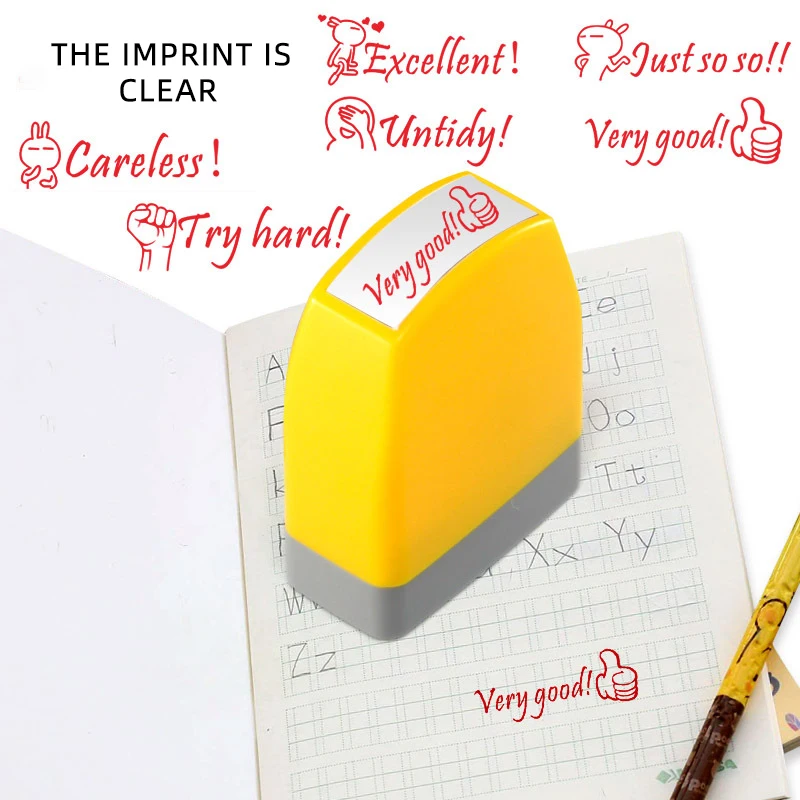 THE IMPRINT IS
CLEAR
Excellent!
Just so so!!
Untidy!
Very good!
Careless!
Try hard!
Very good!
Jj
Oo
Tt
Xx Yy
Zz
Very good!